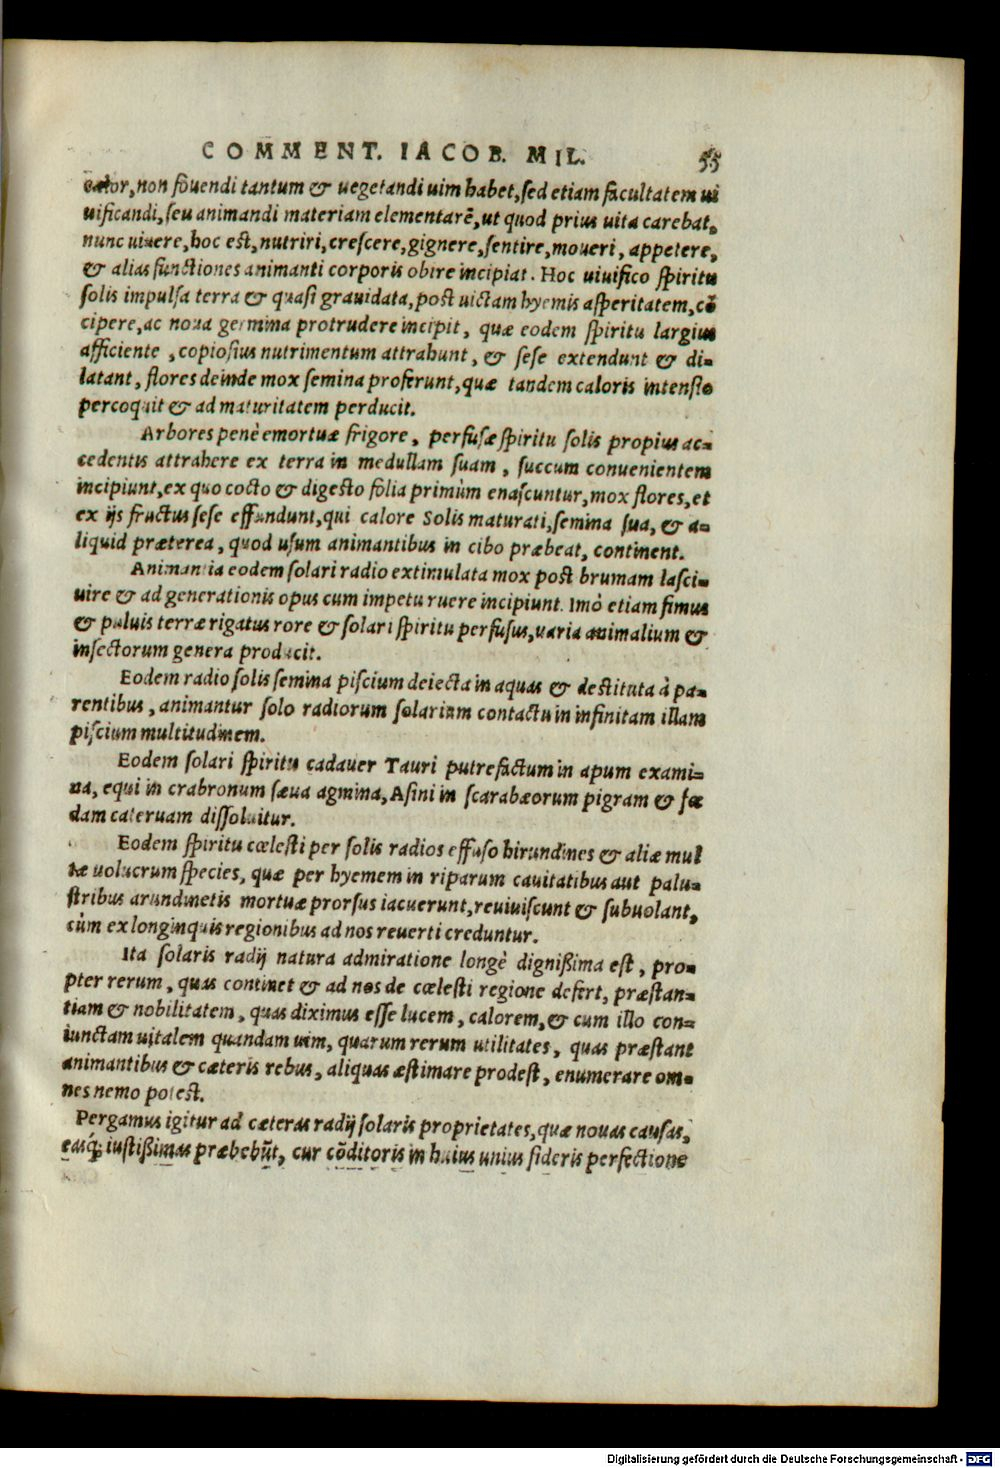 COMMENT. IACOB. MIL. 55
calor, non fouendi tantum & uegetandi uim habet, sed etiam facultatem ui
uificandi, seu animandi materiam elementarē, ut quod prius uita carebat,
nunc uiuere, hoc est, nutriri, crescere, gignere, sentire, moueri, appetere,
& alias functiones animanti corporis obire incipiat. Hoc uiuifico spiritu
solis impulsa terra & quasi grauidata, post uictam hyemis asperitatem, cō
cipere, ac noua germina protrudere incipit, quæ eodem spiritu largius
afficiente, copiosius nutrimentum attrahunt, & sese extendunt & di-
latant, flores deinde mox semina proferunt, quæ tandem caloris intensio
percoquit & ad maturitatem perducit.
Arbores penè emortuæ frigore, perfusæ spiritu solis propius ac-
cedentis attrahere ex terra in medullam suam, succum conuenientem
incipiunt, ex quo cocto & digesto folia primùm enascuntur, mox flores, et
ex ijs fructus sese effundunt, qui calore Solis maturati, semina sua, & a-
liquid præterea, quod usum animantibus in cibo præbeat, continent.
Animantia eodem solari radio extimulata mox post brumam lasci-
uire & ad generationis opus cum impetu ruere incipiunt. Imò etiam fimus
& puluis terræ rigatus rore & solari spiritu perfusus, uaria animalium &
insectorum genera producit.
Eodem radio solis semina piscium deiecta in aquas & destituta à pa-
rentibus, animantur solo radiorum solarium contactu in infinitam illam
piscium multitudinem.
Eodem solari spiritu cadauer Tauri putrefactum in apum exami-
na, equi in crabronum sæua agmina, Asini in scarabæorum pigram & fœ
dam cateruam dissoluitur.
Eodem spiritu cœlesti per solis radios effuso hirundines & aliæ mul
tæ uolucrum species, quæ per hyemem in riparum cauitatibus aut palu-
stribus arundinetis mortuæ prorsus iacuerunt, reuiuiscunt & subuolant,
cùm ex longinquis regionibus ad nos reuerti creduntur.
Ita solaris radij natura admiratione longè dignißima est, pro-
pter rerum, quas continet & ad nos de cœlesti regione defert, præstan-
tiam & nobilitatem, quas diximus esse lucem, calorem, & cum illo con-
iunctam uitalem quandam uim, quarum rerum utilitates, quas præstant
animantibus & cæteris rebus, aliquas æstimare prodest, enumerare om-
nes nemo potest.
Pergamus igitur ad cæteras radij solaris proprietates, quæ nouas causas,
easq́; iustißimas præbebūt, cur cōditoris in huius unius sideris perfectione
Digitalisierung gefördert durch die Deutsche Forschungsgemeinschaft - DFG